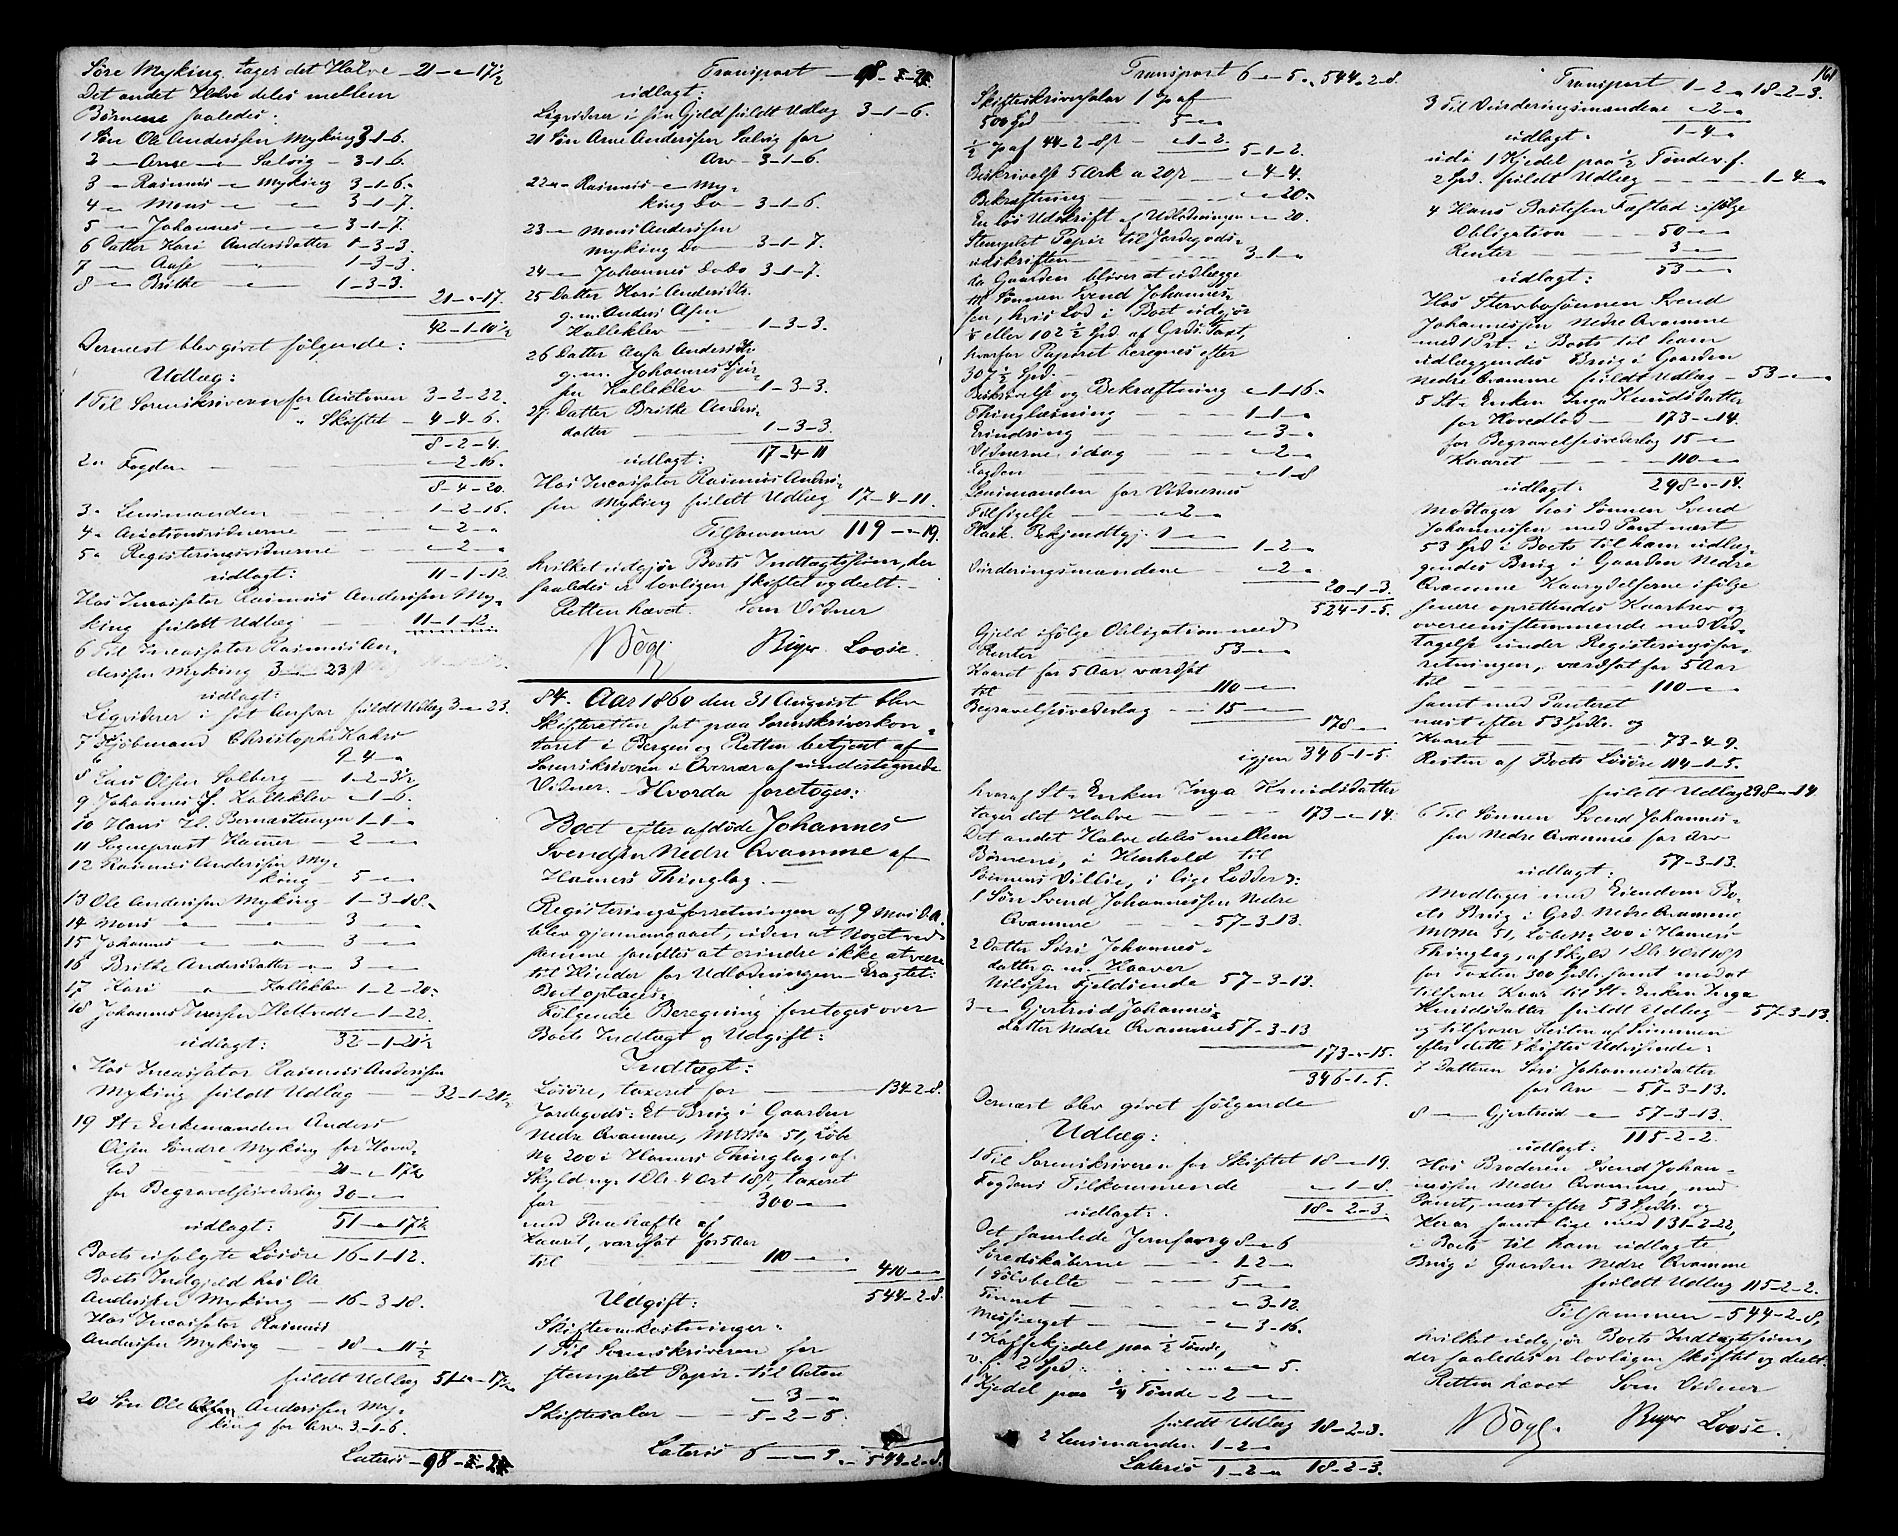 Søre Myking tager det Halve – 21 – „ – 17½
Det andet Halve deles mellem
Børnene saaledes:
1 Søn Ole Anderssen Myking 3-1-6.
2 – Arne – „ – Salvig – 3-1-6.
3 – Rasmus – „ – Myking 3-1-6.
4 – Mons – „ – „ 3-1-7.
5 – Johannes – „ – „ 3-1-7.
6 Datter Kari Andersdatter 1-3-3.
7 – Aase „ 1-3-3.
8 – Brithe – „ – 1-3-3.
21-„-17.
42-1-10½
Dernæst blev givet følgende:
Udlæg:
1 Til Sorenskriveren for Auctionen 3-2-22.
„ Skiftet – 4-4-6.
8-2-4.
2 „ Fogden – „-2-16.
8-4-20.
3 „ Lensmanden 1-2-16.
4 „ Auctionsvidnerne – „-2-„
5 „ Registreringsvidnerne – „-2-„
udlagt: 11-1-12.
Hos Incassator Rasmus Anderssen My-
king fuldt Udlæg 11-1-12.
6 Til Incassator Rasmus An-
derssen Myking 3-„-23ß
udlagt:
Ligviderer i sit Ansvar fuldt Udlæg 3-„-23.
7 Kjøbmand Christopher Kahrs
9-4-„
8 Lars Olsen Solberg – 1-2-3½
9 Johannes J. Kalleklev „-1-6.
10 Hans H. Bernastangen 1-1-„
11 Sogneprest Hammer – 2-„
12 Rasmus Anderssen My-
king – 5-„
13 Ole Anderssen Myking – 1-3-18.
14 Mons – „ 3-„
15 Johannes „ 3-„
16 Brithe Andersdatter – 3-„
17 Kari „ Kalleklev 1-2-20.
18 Johannes Hellvedt „-1-22.
udlagt: 32-1-21½
Hos Incassator Rasmus Anderssen
Myking fuldt Udlæg – 32-1-21½
19 St. Enkemanden Anders
Olsen Søndre Myking for Hoved-
lod – 21-„-17½
for Begravelsesvederlag 30-„-„
udlagt: 51-„-17½
Boets usolgte Løsøre 16-1-12.
Boets Indgjeld hos Ole
Anderssen Myking – 16-3-18.
Hos Incassator Rasmus
Anderssen Myking – 18-„-11½
fuldt Udlæg 51-„-17½
20 Søn Ole Anderssen My-
king for Arv 3-1-6.
Lateris – 98-
Transport – 98-
udlagt:
Ligviderer i sin Gjeld fuldt Udlæg 3-1-6.
21 Søn Arne Anderssen Salvig for
Arv – 3-1-6.
22 „ – Rasmus – „ My-
king Do – 3-1-6.
23 – Mons Anderssen
Myking Do – 3-1-7.
24 – Johannes Do Do 3-1-7.
25 Datter Kari Andersdtr.
g. m. Anders Asen
Kalleklev – 1-3-3.
26 Datter Aasa Andersdtr
g. m. Johannes
sen Kalleklev – 1-3-3.
27 Datter Brithe Anders-
datter – 1-3-3.
udlagt: 17-4-11
Hos Incassator Rasmus Anders-
sen Myking fuldt Udlæg 17-4-11.
Tilsammen 119-„-19.
hvilket udgjør Boets Indtægtssum, der
saaledes er lovligen skiftet og deelt. –
Retten hævet. Som Vidner
Beyer Loose.
84. Aar 1860 den 31 August blev
Skifteretten sat paa Sorenskriverkon-
toret i Bergen og Retten betjent af
Sorenskriveren i Overvær af undertegnede
Vidner. – Hvorda foretoges:
Boet efter afdøde Johannes
Svendsen Nedre Qvamme af
Hamers Thinglag. –
Registeringsforretningen af 9 Mai d.A.
blev gjennemgaaet, uden at Noget ved
samme fandtes at erindre ikke at være
til Hinder for Udlodningen – Eragtet:
Boet optages.
Følgende Beregning foretoges over
Boets Indtægt og Udgift:
Indtægt:
Løsøre, taxeret for – 134-2-8.
Jordegods: Et Brug i Gaarden
Nedre Qvamme, MNo 51, Løbe
No 200 i Hamers Thinglag, af
Skyld nye 1 Dlr. 4 Ort 18ß, taxeret
for 300-„-„
med Paahæfte af
Kaaret, værdsat for 5 Aar
til 110-„-„
410-„-„
544-2-8.
Udgift:
Skifteomkostninger:
1 Til Sorenskriveren for
stemplet Papir til Acten
„-3-„
Skiftesalar – 5-2-5.
Lateris 6-„-5. – 544-2-8.
Transport 6-„-5. „ 544-2-8.
Skifteskriversalar 1 p af
500 Spd 5-„
½ p af 44-2-8ß – „-1-2.
5-1-2.
Beskrivelse 5 Ark a 20ß – „-4-4.
Bekræftning – „-20.
En løs Udskrift af Udlodningen „-20.
Stemplet Papir til Jordegods-
udskriften – 3-1-„
da Gaarden bliver at udlægge
til Sønnen Svend Johannes-
sen, hvis Lod i Boet udgjør
¼ eller 102½ Spd af Grds. Taxt,
hvorfor Papiret beregnes efter
307½ Spd. –
Beskrivelse og Bekræftning „-1-16.
Thinglæsning – 1-1-„
Erindring – „-3-„
Vidnerne idag – „-2-„
Fogden – „-1-8
Lensmanden for Vidnernes
Tilsigelse – „-2-„
Skrk. Bekjendtgj. 1-„
1-2-„
Vurderingsmændene – „-2-„
20-1-3.
524-1-5.
Gjeld ifølge Obligation med
Renter – 53-„-„
Kaaret for 5 Aar værdsat
til – 110-„-„
Begravelsesvederlag – 15-„-„
178-„-„
igjen 346-1-5.
hvoraf St. Enken Inga Knudsdatter
tager det Halve – 173-„-14.
Det andet Halve deles mellem
Børnene, i Henhold til
Sønnens Villie, i lige Lodder:
1 Søn Svend Johannessen Nedre
Qvamme – 57-3-13.
2 Datter Siri Johannes-
datter g. m. Haaver
Nilssen Fjeldsende 57-3-13.
3 – Gjertrud Johannes-
datter Nedre Qvamme 57-3-13
173-„-15.
346-1-5.
Dernæst blev givet følgende
Udlæg:
1 Til Sorenskriveren for Skiftet 18-„-19.
Fogdens Tilkommende „-1-8.
udlagt: 18-2-3.
Det samlede Jernfang 8-„-6
Trædskaberne – 1-2-„
1 Sølvbelte – 5-„
Tinnet – „-3-12.
Messinget – „-3-16.
1 Kaffekjedel paa ½ Tønde,
v. f. 2 Spd: „-„-5.
1 Kjedel paa ¼ Tønde – 2-„
fuldt Udlæg 18-2-3.
2 Lensmanden 1-2-„
Lateris 1-2-„ 18-2-3.
161
Transport 1-2-„ 18-2-3.
3 Til Vurderingsmændene „-2-„
udlagt: 1-4-„
udi 1 Kjedel paa ½ Tønde v. f.
2 Spd. fuldt Udlæg – 1-4-„
4 Hans Bastesen Fastad ifølge
Obligation – 50-„-„
Renter – 3-„-„
udlagt: 53-„-„
Hos Stervbosønnen Svend
Johannessen Nedre Qvamme
med 1 Prt. i Boets til ham
udlæggendes Brug i Gaarden
Nedre Qvamme fuldt Udlæg – 53-„-„
5 St. Enken Inga Knudsdatter
for Hovedlod – 173-„-14.
for Begravelsesvederlag 15-„-„
Kaaret – 110-„-„
udlagt: 298-„-14.
Modtager hos Sønnen Svend
Johannessen med Pant næst
53 Spd i Boets til ham udlæg-
gendes Brug i Gaarden Nedre
Qvamme Kaarydelserne ifølge
senere oprettendes Kaarbrev og
overeensstemmende med Ved-
tagelse under Registeringsfor-
retningen, værdsat for 5 Aar
til 110-„-„
samt med Panteret
næst efter 53 Spdlr. og
Kaaret – 73-4-9.
Resten af Boets Løsøre 114-1-5.
fuldt Udlæg 298-„-14
6 Til Sønnen Svend Johannes-
sen Nedre Qvamme for Arv
57-3-13.
udlagt:
Modtager med Eiendom Bo-
ets Brug i Grd. Nedre Qvamme,
MNo 51, LøbeNo 200 i Hamers
Thinglag, af Skyld 1 Dlr 4 Ort 18ß
for Taxten 300 Spdlr. samt mod at
tilsvare Kaar til St. Enken Inga
Knudsdatter fuldt Udlæg – 57-3-13.
og tilsvarer Resten af Summen
efter dette Skiftes Udvisende:
7 Datteren Siri Johannesdatter
for Arv – 57-3-13.
8 – Gjertrud – „ – 57-3-13.
115-2-2.
udlagt:
Hos Broderen Svend Johan-
nessen Nedre Qvamme, med
Panret, næst efter 53 Spdlr. og
Kaar samt lige med 131-2-22,
i Boets til ham udlagte
Brug i Gaarden Nedre Qvamme
fuldt Udlæg 115-2-2.
Tilsammen – 544-2-8,
hvilket udgjør Boets Indtægtssum,
der saaledes er lovligen skiftet og deelt.
Retten hævet Som Vidner
Beyer Loose.